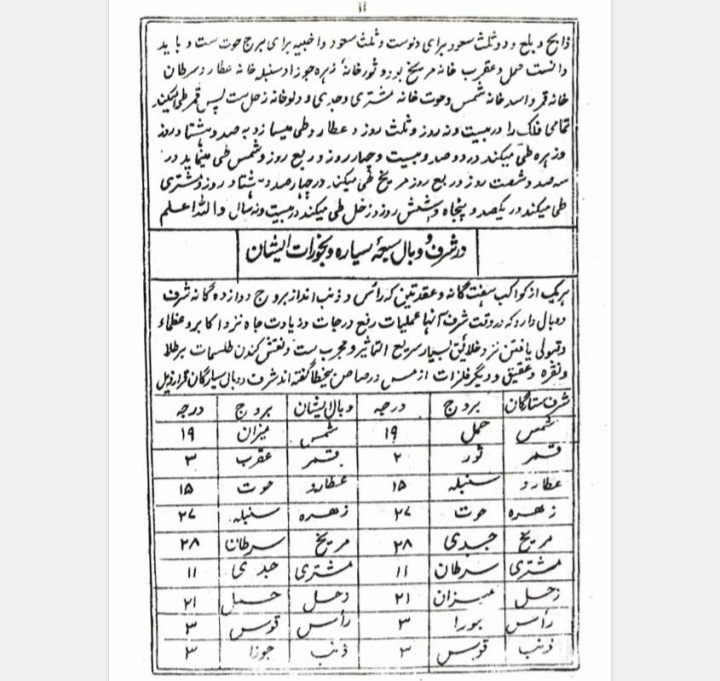 ۱۱
ذابح و بلع و دو ثلث سعود برای دلوست و ثلث سعود و اخبیه برای برج حوت ست و باید
دانست حمل و عقرب خانه مریخ بود و ثور خانهٔ زهره جوزا و سنبله خانه عطارد سرطان
خانه قمر و اسد خانه شمس و حوت خانه مشتری و جدی و دلو خانه زحل ست پس قمر طی میکند
تمامی فلک را در بیست و نه روز و ثلث روز و عطارد طی میسازد به صد و هشتاد روز
و زهره طی میکند در دو صد و بیست و چهار روز و ربع روز و شمس طی مینماید در
سه صد و شصت روز و ربع روز مریخ طی میکند در چهار صد و هشتاد روز و مشتری
طی میکند در یکصد و پنجاه و شش روز و زحل طی میکند در بیست و نه سال والله اعلم
در شرف و وبال سبعهٔ سیاره و بخورات ایشان
هریک از کواکب سبعت گانه و عقدتین که رائس و ذنب انداز بروج دوازده گانه شرف
و وبال دارد که در وقت شرف آنها عملیات رفع درجات و زیادت جاه نزد اکابر و عظماء
و تمولی یافتن نزد خلائق بسیار سریع التاثیر و مجرب ست و نقش کندن طلسمات بر طلا
و نقره و عقیق و دیگر فلزات از مس و رصاص گفته اند شرف و وبال سیارگان قرار ذیل
شرف ستارگان بروج درجه وبال ایشان بروج درجه
شمس حمل ۱۹ شمس میزان ۱۹
قمر ثور ۲ قمر عقرب ۳
عطارد سنبله ۱۵ عطارد حوت ۱۵
زهره حوت ۲۷ زهره سنبله ۲۷
مریخ جدی ۲۸ مریخ سرطان ۲۸
مشتری سرطان ۱۱ مشتری جدی ۱۱
زحل میزان ۲۱ زحل حمل ۲۱
رأس جوزا ۳ رأس قوس ۳
ذنب قوس ۳ ذنب جوزا ۳